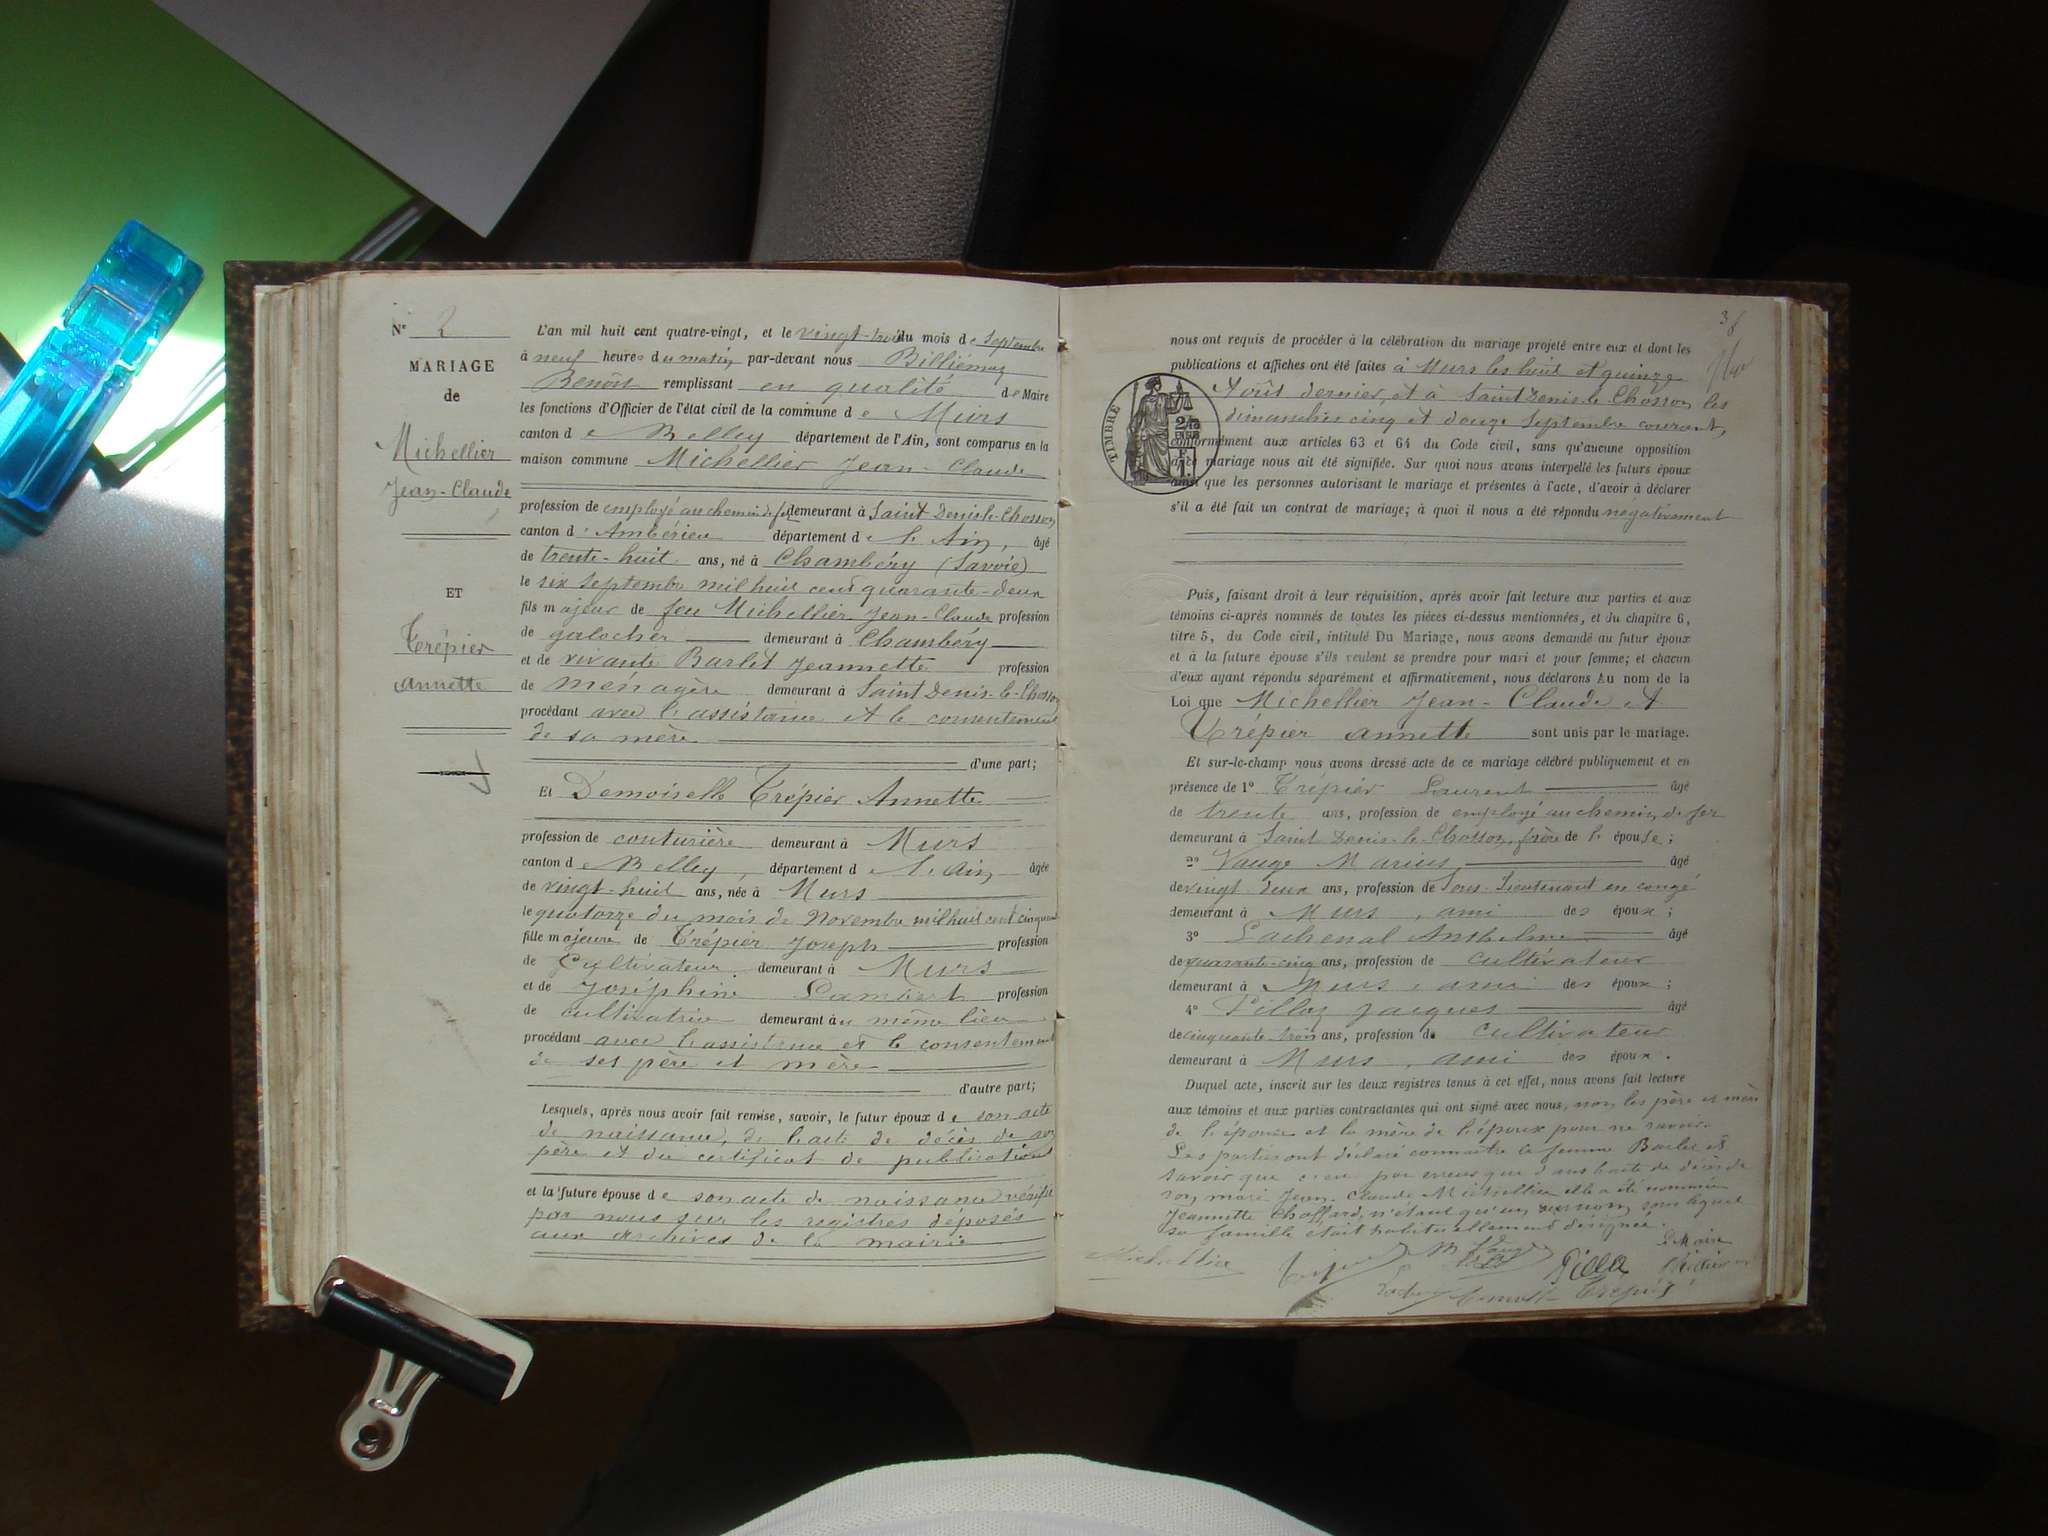 N° 2
MARIAGE
de
Michellier
Jean-Claude
ET
Trépier
Annette
L'an mil huit cent quatre-vingt, et le vingt-trois du mois de Septembre
à neuf heures du matin, par-devant nous Billiémaz
Benoît remplissant en qualité de Maire
les fonctions d'Officier de l'état civil de la commune de Murs
canton de Belley département de l'Ain, sont comparus en la
maison commune Michellier Jean-Claude
profession de employé au chemin de fer demeurant à Saint Denis-le-Chosson
canton d'Ambérieu département de l'Ain, âgé
de trente-huit ans, né à Chambéry (Savoie)
le six Septembre mil huit cent quarante-deux
fils majeur de feu Michellier Jean-Claude profession
de galocher demeurant à Chambéry
et de vivante Barlet Jeannette profession
de ménagère demeurant à Saint Denis-le-Chosson
procédant avec l'assistance et le consentement
de sa mère
d'une part;
Et Demoiselle Trépier Annette
profession de couturière demeurant à Murs
canton de Belley, département de l'Ain âgée
de vingt-huit ans, née à Murs
le quatorze du mois de Novembre mil huit cent cinquante
fille majeure de Trépier Joseph profession
de Cultivateur demeurant à Murs
et de Joséphine profession
de cultivatrice demeurant au même lieu
procédant avec l'assistance et le consentement
de ses père et mère
d'autre part;
Lesquels, après nous avoir fait remise, savoir, le futur époux de son acte
de naissance, de l'acte de décès de son
père et du certificat de publication
et la future épouse de son acte de naissance vérifié
par nous sur les registres déposés
aux archives de la mairie
38
nous ont requis de procéder à la célébration du mariage projeté entre eux et dont les
publications et affiches ont été faites à Murs les huit et quinze
Août dernier, et à Saint Denis-le-Chosson les
dimanches cinq et douze Septembre courant,
TIMBRE
2/10
EN SUS
conformément aux articles 63 et 64 du Code civil, sans qu'aucune opposition
à ce mariage nous ait été signifiée. Sur quoi nous avons interpellé les futurs époux
ainsi que les personnes autorisant le mariage et présentes à l'acte, d'avoir à déclarer
s'il a été fait un contrat de mariage; à quoi il nous a été répondu négativement
Puis, faisant droit à leur réquisition, après avoir fait lecture aux parties et aux
témoins ci-après nommés de toutes les pièces ci-dessus mentionnées, et du chapitre 6,
titre 5, du Code civil, intitulé Du Mariage, nous avons demandé au futur époux
et à la future épouse s'ils veulent se prendre pour mari et pour femme; et chacun
d'eux ayant répondu séparément et affirmativement, nous déclarons Au nom de la
Loi que Michellier Jean-Claude et
Trépier Annette sont unis par le mariage.
Et sur-le-champ nous avons dressé acte de ce mariage célébré publiquement et en
présence de 1° Trépier Laurent âgé
de trente ans, profession de employé au chemin de fer
demeurant à Saint Denis-le-Chosson, frère de l'épouse;
2° Vauge Marius, âgé
de vingt-deux ans, profession de Sous-Lieutenant en congé
demeurant à Murs, ami des époux;
3° Lachenal Anthelme âgé
de quarante-cinq ans, profession de cultivateur
demeurant à Murs, ami des époux;
4° Pilloz Jacques âgé
de cinquante-trois ans, profession de cultivateur
demeurant à Murs, ami des époux.
Duquel acte, inscrit sur les deux registres tenus à cet effet, nous avons fait lecture
aux témoins et aux parties contractantes qui ont signé avec nous, non les père et mère
de l'épouse et la mère de l'époux pour ne savoir.
Les parties ont déclaré connaître la femme Barlet et
savoir que c'est par erreur que dans l'acte de décès de
son mari Jean-Claude Michellier elle a été nommée
Jeannette Choffard, n'étant qu'un surnom sous lequel
sa famille était habituellement désignée.
Michellier M Vauge Pilloz Le Maire
Annette Trépier